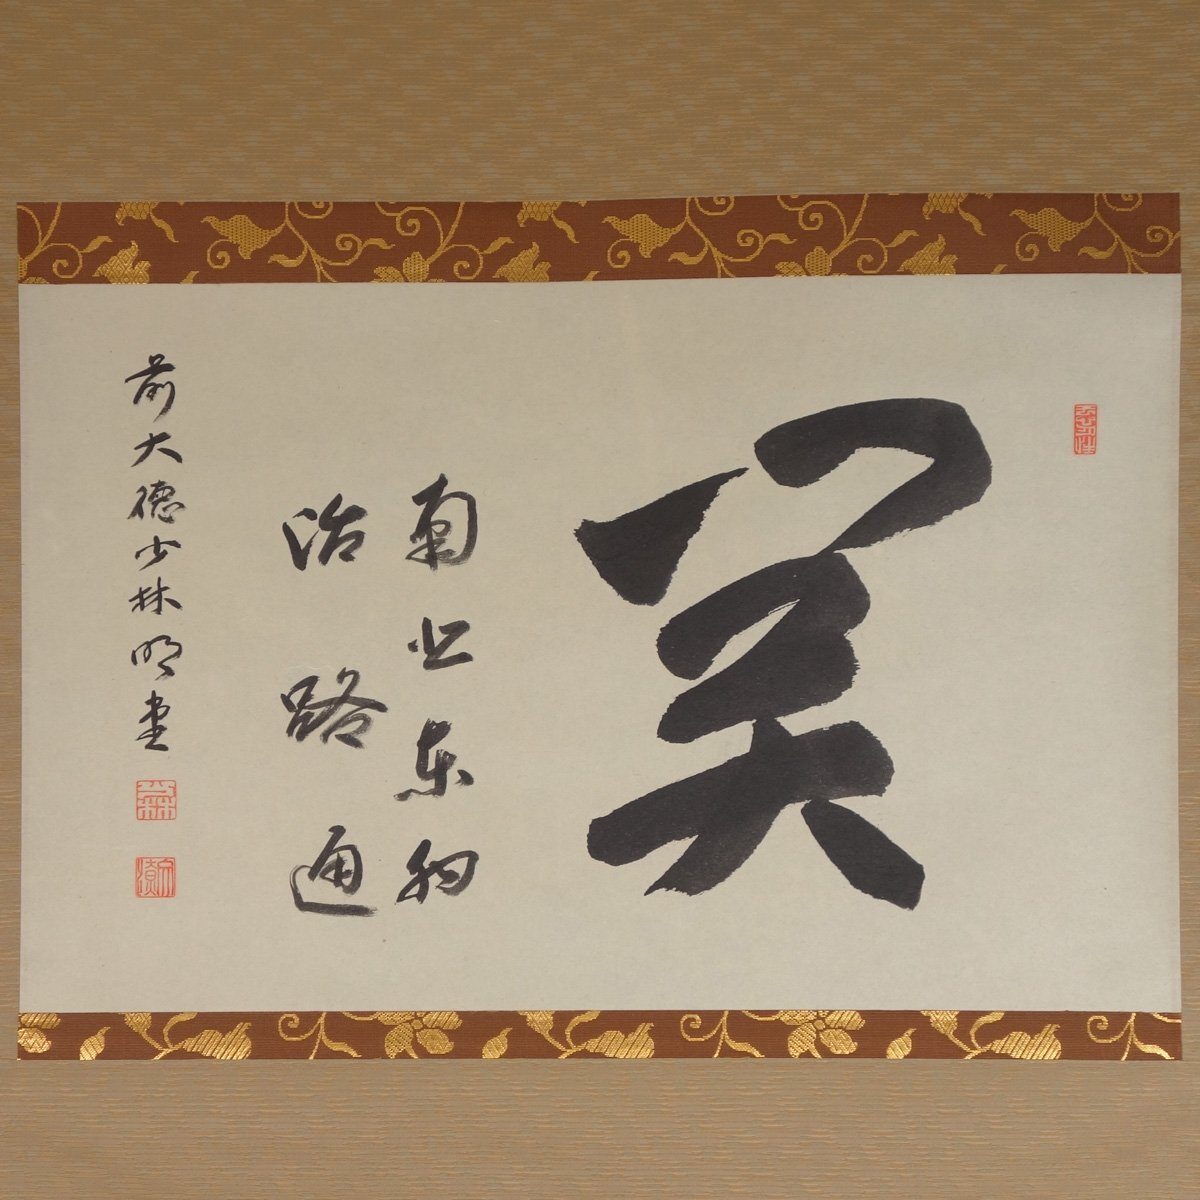 関
南北東西
活路通
前大徳少林明堂
少林